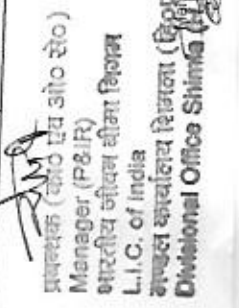 प्रबन्धक (का० एवं औ० सं०)
Manager (P&IR)
भारतीय जीवन बीमा निगम
L.I.C. of India
मण्डल कार्यालय शिमला (हि०
Divisional Office Shimla (H